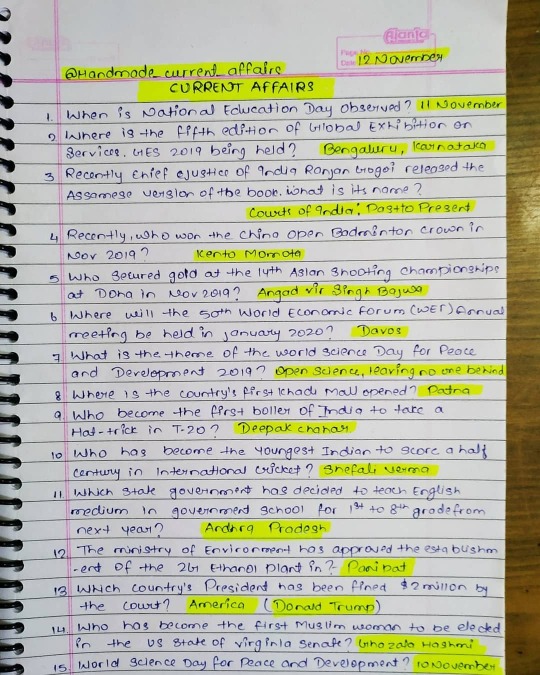 Ajanta
Page No.
Date 12 November
@Handmade_current_affairs
CURRENT AFFAIRS
1. When is National Education Day observed? 11 November
2 Where is the fifth edition of Global Exhibition on
Services. GES 2019 being held? Bengaluru, Karnataka
3 Recently Chief Justice of India Ranjan Gogoi released the
Assamese version of the book. what is its name?
Courts of India: Past to Present
4 Recently, who won the China Open Badminton crown in
Nov 2019? Kento Momota
5 Who secured gold at the 14th Asian Shooting Championships
at Doha in Nov 2019? Angad Vir Singh Bajwa
6 Where will the 50th World Economic Forum (WEF) Annual
meeting be held in january 2020? Davos
7. What is the theme of the world science Day for Peace
and Development 2019? Open Science, leaving no one behind
8 Where is the country's first Khadi Mall opened? Patna
9 Who become the first boller of India to take a
Hat-trick in T-20? Deepak chahar
10 Who has become the youngest Indian to score a half
century in International cricket? Shefali Verma
11. Which state government has decided to teach English
medium in government school for 1st to 8th grade from
next year? Andhra Pradesh
12. The ministry of Environment has approved the establishm
-ent of the 2G Ethanol plant in? Panipat
13 Which country's President has been fined $2 million by
the court? America (Donald Trump)
14. Who has become the first Muslim woman to be elected
in the US State of Virginia Senate? Ghazala Hashmi
15. World Science Day for Peace and Development? 10 November